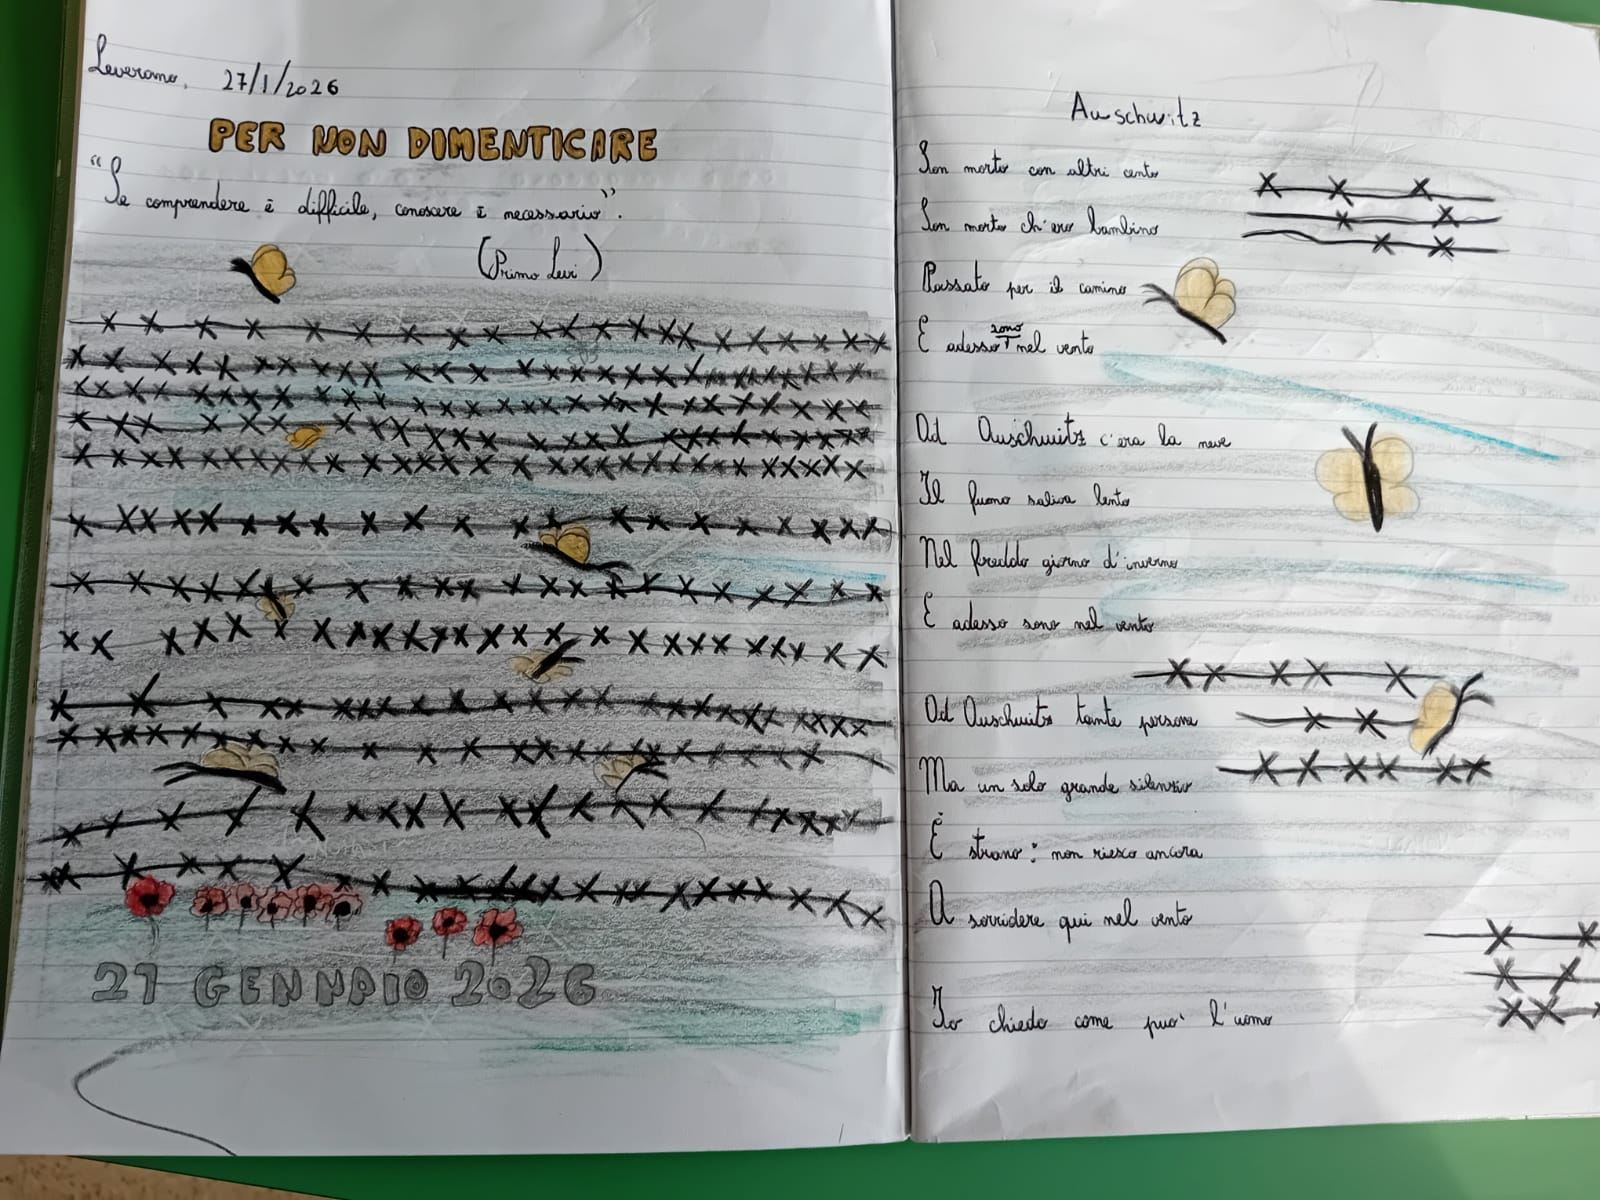 Leverano, 27/1/2026
PER NON DIMENTICARE
"Se comprendere è difficile, conoscere è necessario".
(Primo Levi)
27 GENNAIO 2026
Auschwitz
Son morto con altri cento
Son morto ch'ero bambino
Passato per il camino
E adesso sono nel vento
Ad Auschwitz c'era la neve
Il fumo saliva lento
Nel freddo giorno d'inverno
E adesso sono nel vento
Ad Auschwitz tante persone
Ma un solo grande silenzio
È strano: non riesco ancora
A sorridere qui nel vento
Io chiedo come può l'uomo